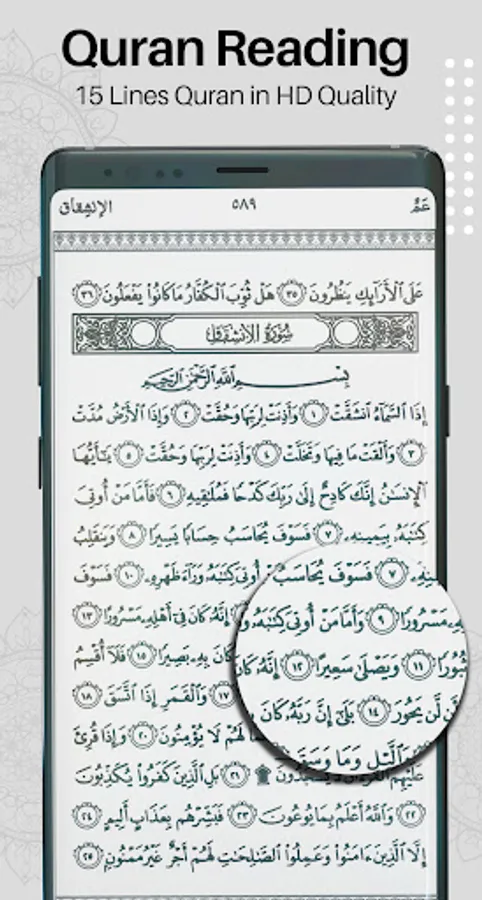 Quran Reading
15 Lines Quran in HD Quality
عَمَّ ٥٨٩ الإنشِقَاق
عَلَى ٱلْأَرَآئِكِ يَنظُرُونَ ٣٥ هَلْ ثُوِّبَ ٱلْكُفَّارُ مَا كَانُوا۟ يَفْعَلُونَ ٣٦
سُورَةُ الانشقاق
بِسْمِ ٱللَّهِ ٱلرَّحْمَٰنِ ٱلرَّحِيمِ
إِذَا ٱلسَّمَآءُ ٱنشَقَّتْ ١ وَأَذِنَتْ لِرَبِّهَا وَحُقَّتْ ٢ وَإِذَا ٱلْأَرْضُ مُدَّتْ
٣ وَأَلْقَتْ مَا فِيهَا وَتَخَلَّتْ ٤ وَأَذِنَتْ لِرَبِّهَا وَحُقَّتْ ٥ يَٰٓأَيُّهَا
ٱلْإِنسَٰنُ إِنَّكَ كَادِحٌ إِلَىٰ رَبِّكَ كَدْحًا فَمُلَٰقِيهِ ٦ فَأَمَّا مَنْ أُوتِىَ
كِتَٰبَهُۥ بِيَمِينِهِۦ ٧ فَسَوْفَ يُحَاسَبُ حِسَابًا يَسِيرًا ٨ وَيَنقَلِبُ
٧ فَسَوْفَ يُحَاسَبُ أُوتِىَ كِتَٰبَهُۥ وَرَآءَ ظَهْرِهِۦ ١٠ فَسَوْفَ
مَسْرُورًا ٩ وَأَمَّا مَنْ أُوتِىَ كِتَٰبَهُۥ إِنَّهُۥ كَانَ فِىٓ أَهْلِهِۦ مَسْرُورًا ١٣
ثُبُورًا ١١ وَيَصْلَىٰ سَعِيرًا ١٢ إِنَّهُۥ كَانَ بِهِۦ بَصِيرًا ١٥ فَلَآ أُقْسِمُ
لَّن يَحُورَ ١٤ بَلَىٰٓ إِنَّ رَبَّهُۥ كَانَ ١٧ وَٱلْقَمَرِ إِذَا ٱتَّسَقَ ١٨
وَمَا وَسَقَ لَهُمْ لَا يُؤْمِنُونَ ٢٠ وَإِذَا قُرِئَ
عَلَيْهِمُ ۩ ٢١ بَلِ ٱلَّذِينَ كَفَرُوا۟ يُكَذِّبُونَ
٢٢ وَٱللَّهُ أَعْلَمُ بِمَا يُوعُونَ ٢٣ فَبَشِّرْهُم بِعَذَابٍ أَلِيمٍ ٢٤
إِلَّا ٱلَّذِينَ ءَامَنُوا۟ وَعَمِلُوا۟ ٱلصَّٰلِحَٰتِ لَهُمْ أَجْرٌ غَيْرُ مَمْنُونٍ ٢٥